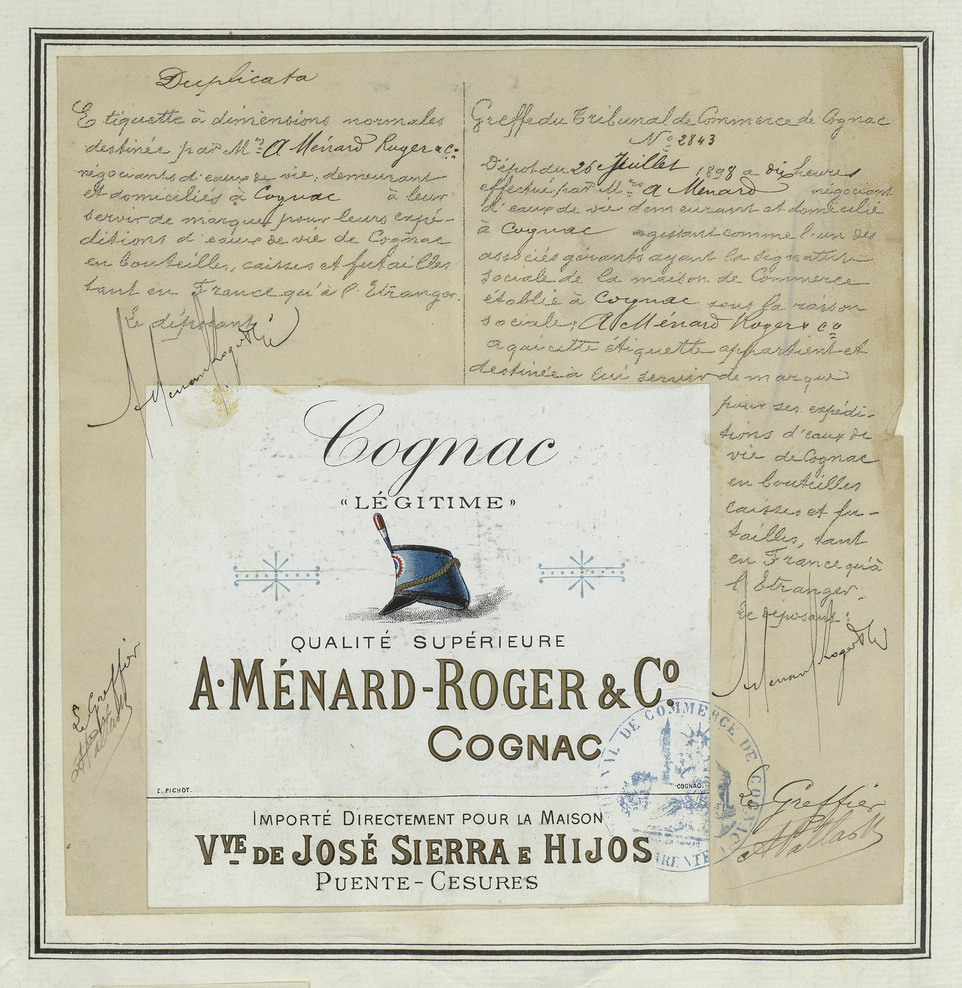 Duplicata
Etiquette à dimensions normales
destinée par Mrs A Ménard Roger & Co
négociants d'eaux de vie, demeurant
et domiciliés à Cognac à leur
servir de marque pour leurs expé-
ditions d'eaux de vie de Cognac
en bouteilles, caisses et futailles
tant en France qu'à l'Etranger.
Le déposant
A Ménard Roger & Co
Greffe du Tribunal de Commerce de Cognac
No 2843
Dépot du 26 Juillet 1898 a dix heures
effectué par Mr A Ménard négociant
d'eaux de vie demeurant et domicilié
à Cognac agissant comme l'un des
associés gérants ayant la signature
sociale de la maison de Commerce
établie à Cognac sous la raison
sociale, A Ménard Roger & Co
a qui cette étiquette appartient et
destinée à lui servir de marque
pour ses expédi-
tions d'eaux de
vie de Cognac
en bouteilles
caisses et fu-
tailles, tant
en France qu'à
l'Etranger.
Le déposant
A Ménard Roger & Co
Le Greffier
Le Greffier
Cognac
«LÉGITIME»
QUALITÉ SUPÉRIEURE
A·MÉNARD-ROGER & Co.
COGNAC
C. PICHOT. COGNAC.
IMPORTÉ DIRECTEMENT POUR LA MAISON
VVE DE JOSÉ SIERRA E HIJOS
PUENTE-CESURES
NAL DE COMMERCE DE COGNAC
RENTE